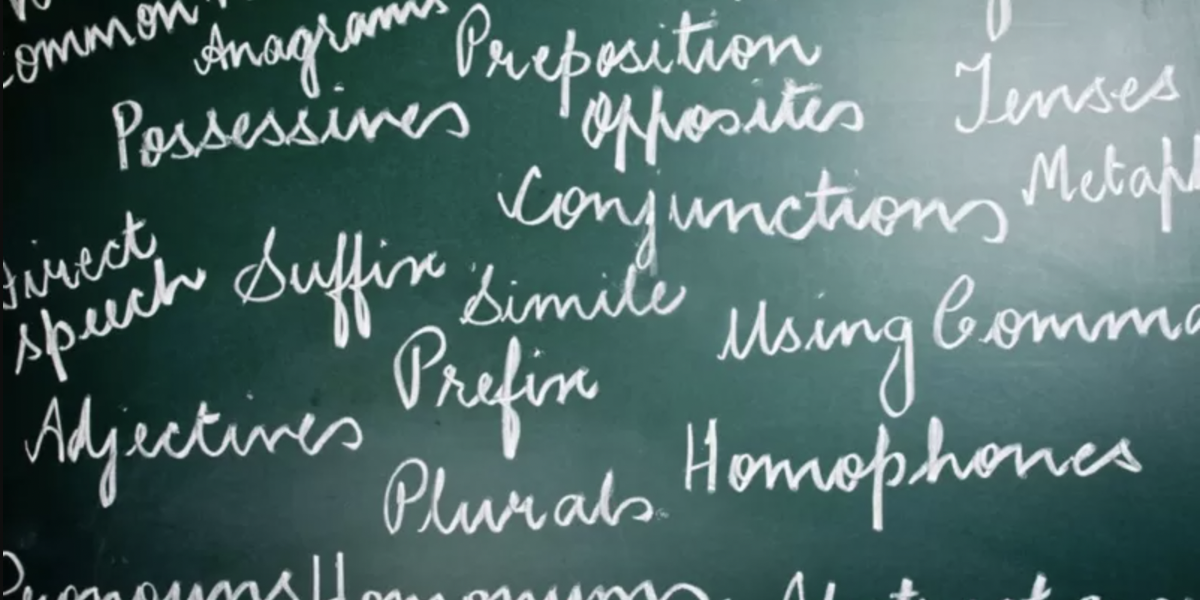 Common
Anagrams
Preposition
Possessives
Opposites
Tenses
Conjunctions
Metaph
Direct
speech
Suffix
Simile
Using Comma
Prefix
Adjectives
Homophones
Plurals
Pronouns
Homonyms